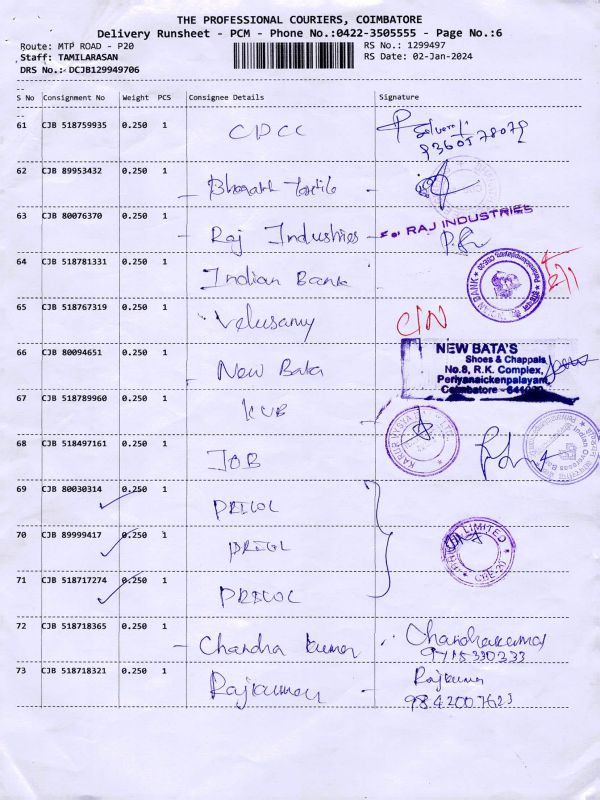 THE PROFESSIONAL COURIERS, COIMBATORE
Delivery Runsheet - PCM - Phone No.:0422-3505555 - Page No.:6
Route: MTP ROAD - P20 RS No.: 1299497
Staff: TAMILARASAN RS Date: 02-Jan-2024
DRS No.: DCJB129949706
S No Consignment No Weight PCS Consignee Details Signature
61 CJB 518759935 0.250 1 CDCC
62 CJB 89953432 0.250 1 Bharath Textile
63 CJB 80076370 0.250 1 Raj Industries For RAJ INDUSTRIES
64 CJB 518781331 0.250 1 Indian Bank INDIAN BANK
65 CJB 518767319 0.250 1 Velusamy C/N
66 CJB 80094651 0.250 1 New Bata NEW BATA'S
Shoes & Chappals
No.8, R.K. Complex,
Periyanaickenpalayam
Coimbatore - 641020
67 CJB 518789960 0.250 1 KVB KARUR VYSYA
68 CJB 518497161 0.250 1 IOB Indian Overseas Bank
69 CJB 80030314 0.250 1 PRICOL
70 CJB 89999417 0.250 1 PRICOL LIMITED CBE-20
71 CJB 518717274 0.250 1 PRICOL
72 CJB 518718365 0.250 1 Chandra Kumar Chandrakumar
9715330333
73 CJB 518718321 0.250 1 Rajkumar Rajkumar
9842007623